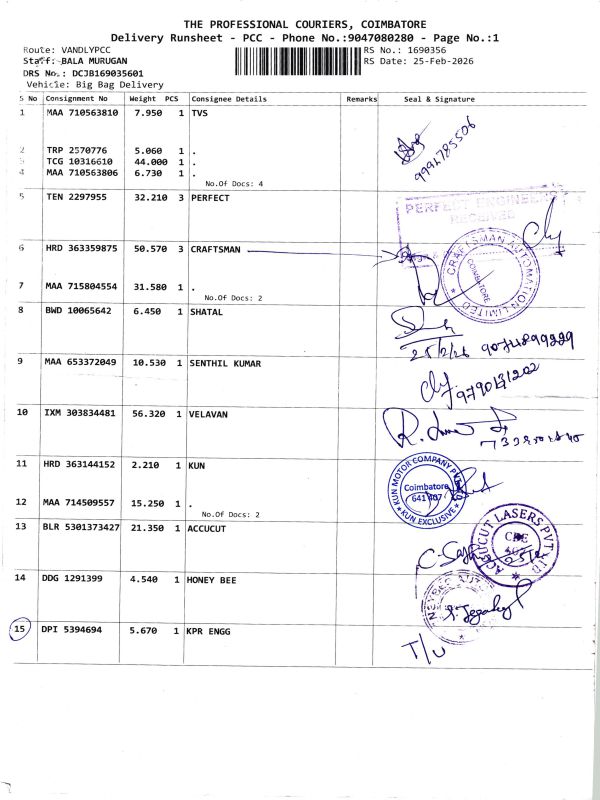 THE PROFESSIONAL COURIERS, COIMBATORE
Delivery Runsheet - PCC - Phone No.:9047080280 - Page No.:1
Route: VANDLYPCC
RS No.: 1690356
Staff: BALA MURUGAN
RS Date: 25-Feb-2026
DRS No.: DCJB169035601
Vehicle: Big Bag Delivery
S No Consignment No Weight PCS Consignee Details Remarks Seal & Signature
1 MAA 710563810 7.950 1 TVS
9994785506
2 TRP 2570776 5.060 1 .
3 TCG 10316610 44.000 1 .
4 MAA 710563806 6.730 1 .
No.Of Docs: 4
5 TEN 2297955 32.210 3 PERFECT
PERFECT ENGINEERS
RECEIVED
6 HRD 363359875 50.570 3 CRAFTSMAN
CRAFTSMAN AUTOMATION LIMITED
COIMBATORE
7 MAA 715804554 31.580 1 .
No.Of Docs: 2
8 BWD 10065642 6.450 1 SHATAL
25/2/26
9 MAA 653372049 10.530 1 SENTHIL KUMAR
9790131202
10 IXM 303834481 56.320 1 VELAVAN
11 HRD 363144152 2.210 1 KUN
KUN MOTOR COMPANY PVT
Coimbatore
641 407
KUN EXCLUSIVE
12 MAA 714509557 15.250 1 .
No.Of Docs: 2
13 BLR 5301373427 21.350 1 ACCUCUT
ACCUCUT LASERS PVT LTD
CBE
14 DDG 1291399 4.540 1 HONEY BEE
15 DPI 5394694 5.670 1 KPR ENGG
T/U